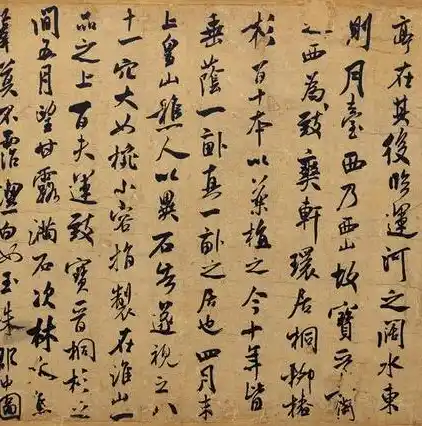 亭在其後臨運河之闊水東
則月臺西乃西山故寶晉齋
之西為致爽軒環居桐柳椿
杉百十本以藥植之今十年皆
垂蔭一畝真一畝之居也四月末
上皇山樵人以異石告遂視之八
十一穴大如椀小容指製在淮山一
品之上百夫運致寶晉桐杉之
間五月望甘露滿石次林木焦
葦莫不霑潔白如玉朱郡中圖